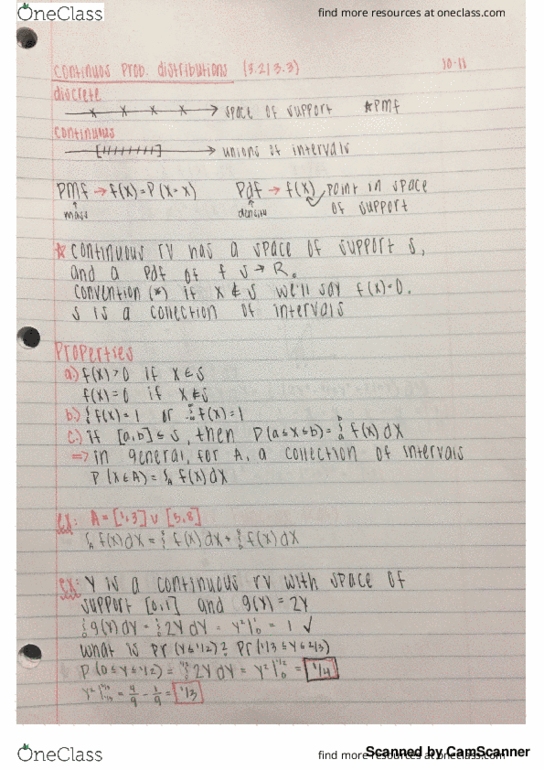 OneClass
find more resources at oneclass.com
continuos prob. distributions (3.2/3.3) 10-11
discrete
x x x x → space of support *pmf
continuous
[/////////] → unions of intervals
pmf → f(x)=P(X=x) pdf → f(x) point in space
mass density of support
* continuous rv has a space of support s,
and a pdf of f s→R.
convention (*) if x∉s we'll say f(x)=0.
s is a collection of intervals
Properties
a.) f(x)>0 if x∈s
f(x)=0 if x∉s
b.) ∫f(x)=1 or ∫f(x)=1
c.) if [a,b]⊆s, then P(a≤x≤b)=∫f(x)dx
⇒ in general, for A, a collection of intervals
P(x∈A)=∫f(x)dx
Ex: A=[1,3]∪[5,8]
∫f(x)dx=∫f(x)dx+∫f(x)dx
Ex: Y is a continuous rv with space of
support [0,1] and g(y)=2y
∫g(y)dy=∫2ydy=y²|₀¹=1 ✓
what is pr(y≤1/2)? pr(1/3≤y≤2/3)
P(0≤y≤1/2)=∫2ydy=y²|=1/4
y²|=4/9-1/9=1/3
OneClass
find more resources at oneclass.com
Scanned by CamScanner